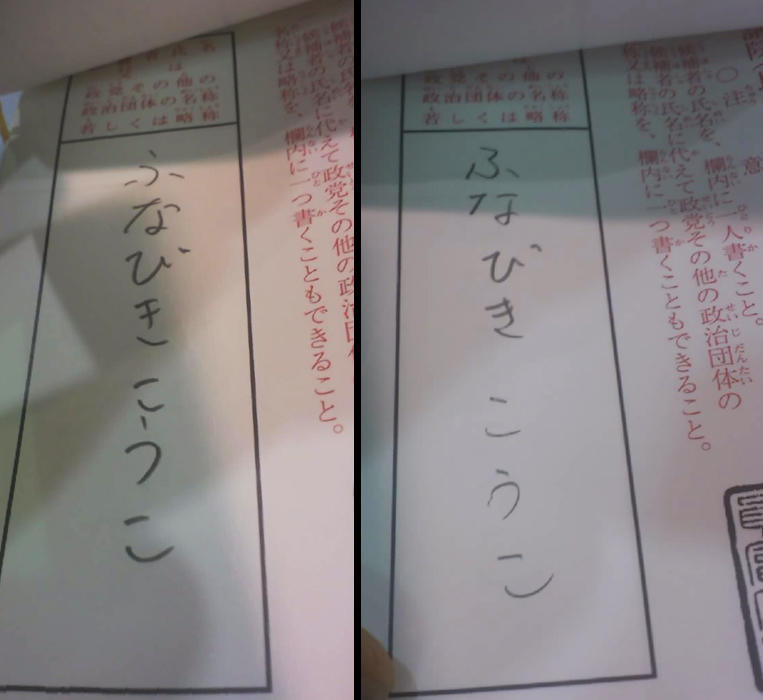 候補者氏名
又は
政党その他の
政治団体の名称
若しくは略称
ふなびきこうこ
候補者の氏名に代えて政党その他の政治団体
名称又は略称を、欄内に一つ書くこともできること。
又は
政党その他の
政治団体の名称
若しくは略称
ふなびき こうこ
○注意
候補者の氏名を、欄内に一人書くこと。
候補者の氏名に代えて政党その他の政治団体の
名称又は略称を、欄内に一つ書くこともできること。